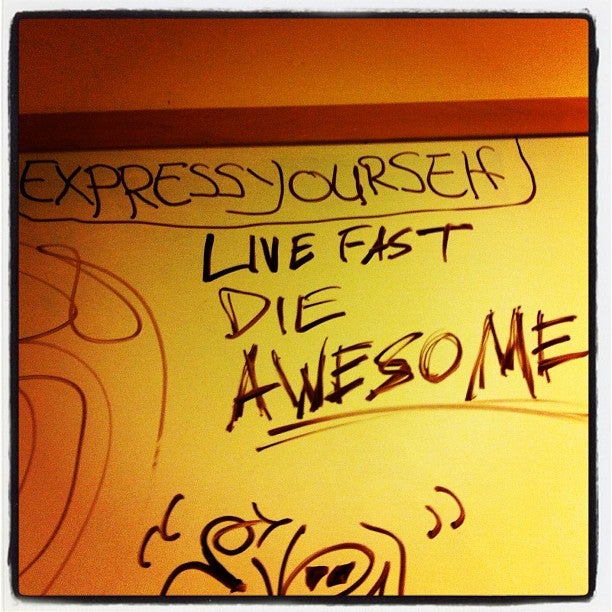 EXPRESS YOURSELF
LIVE FAST
DIE
AWESOME